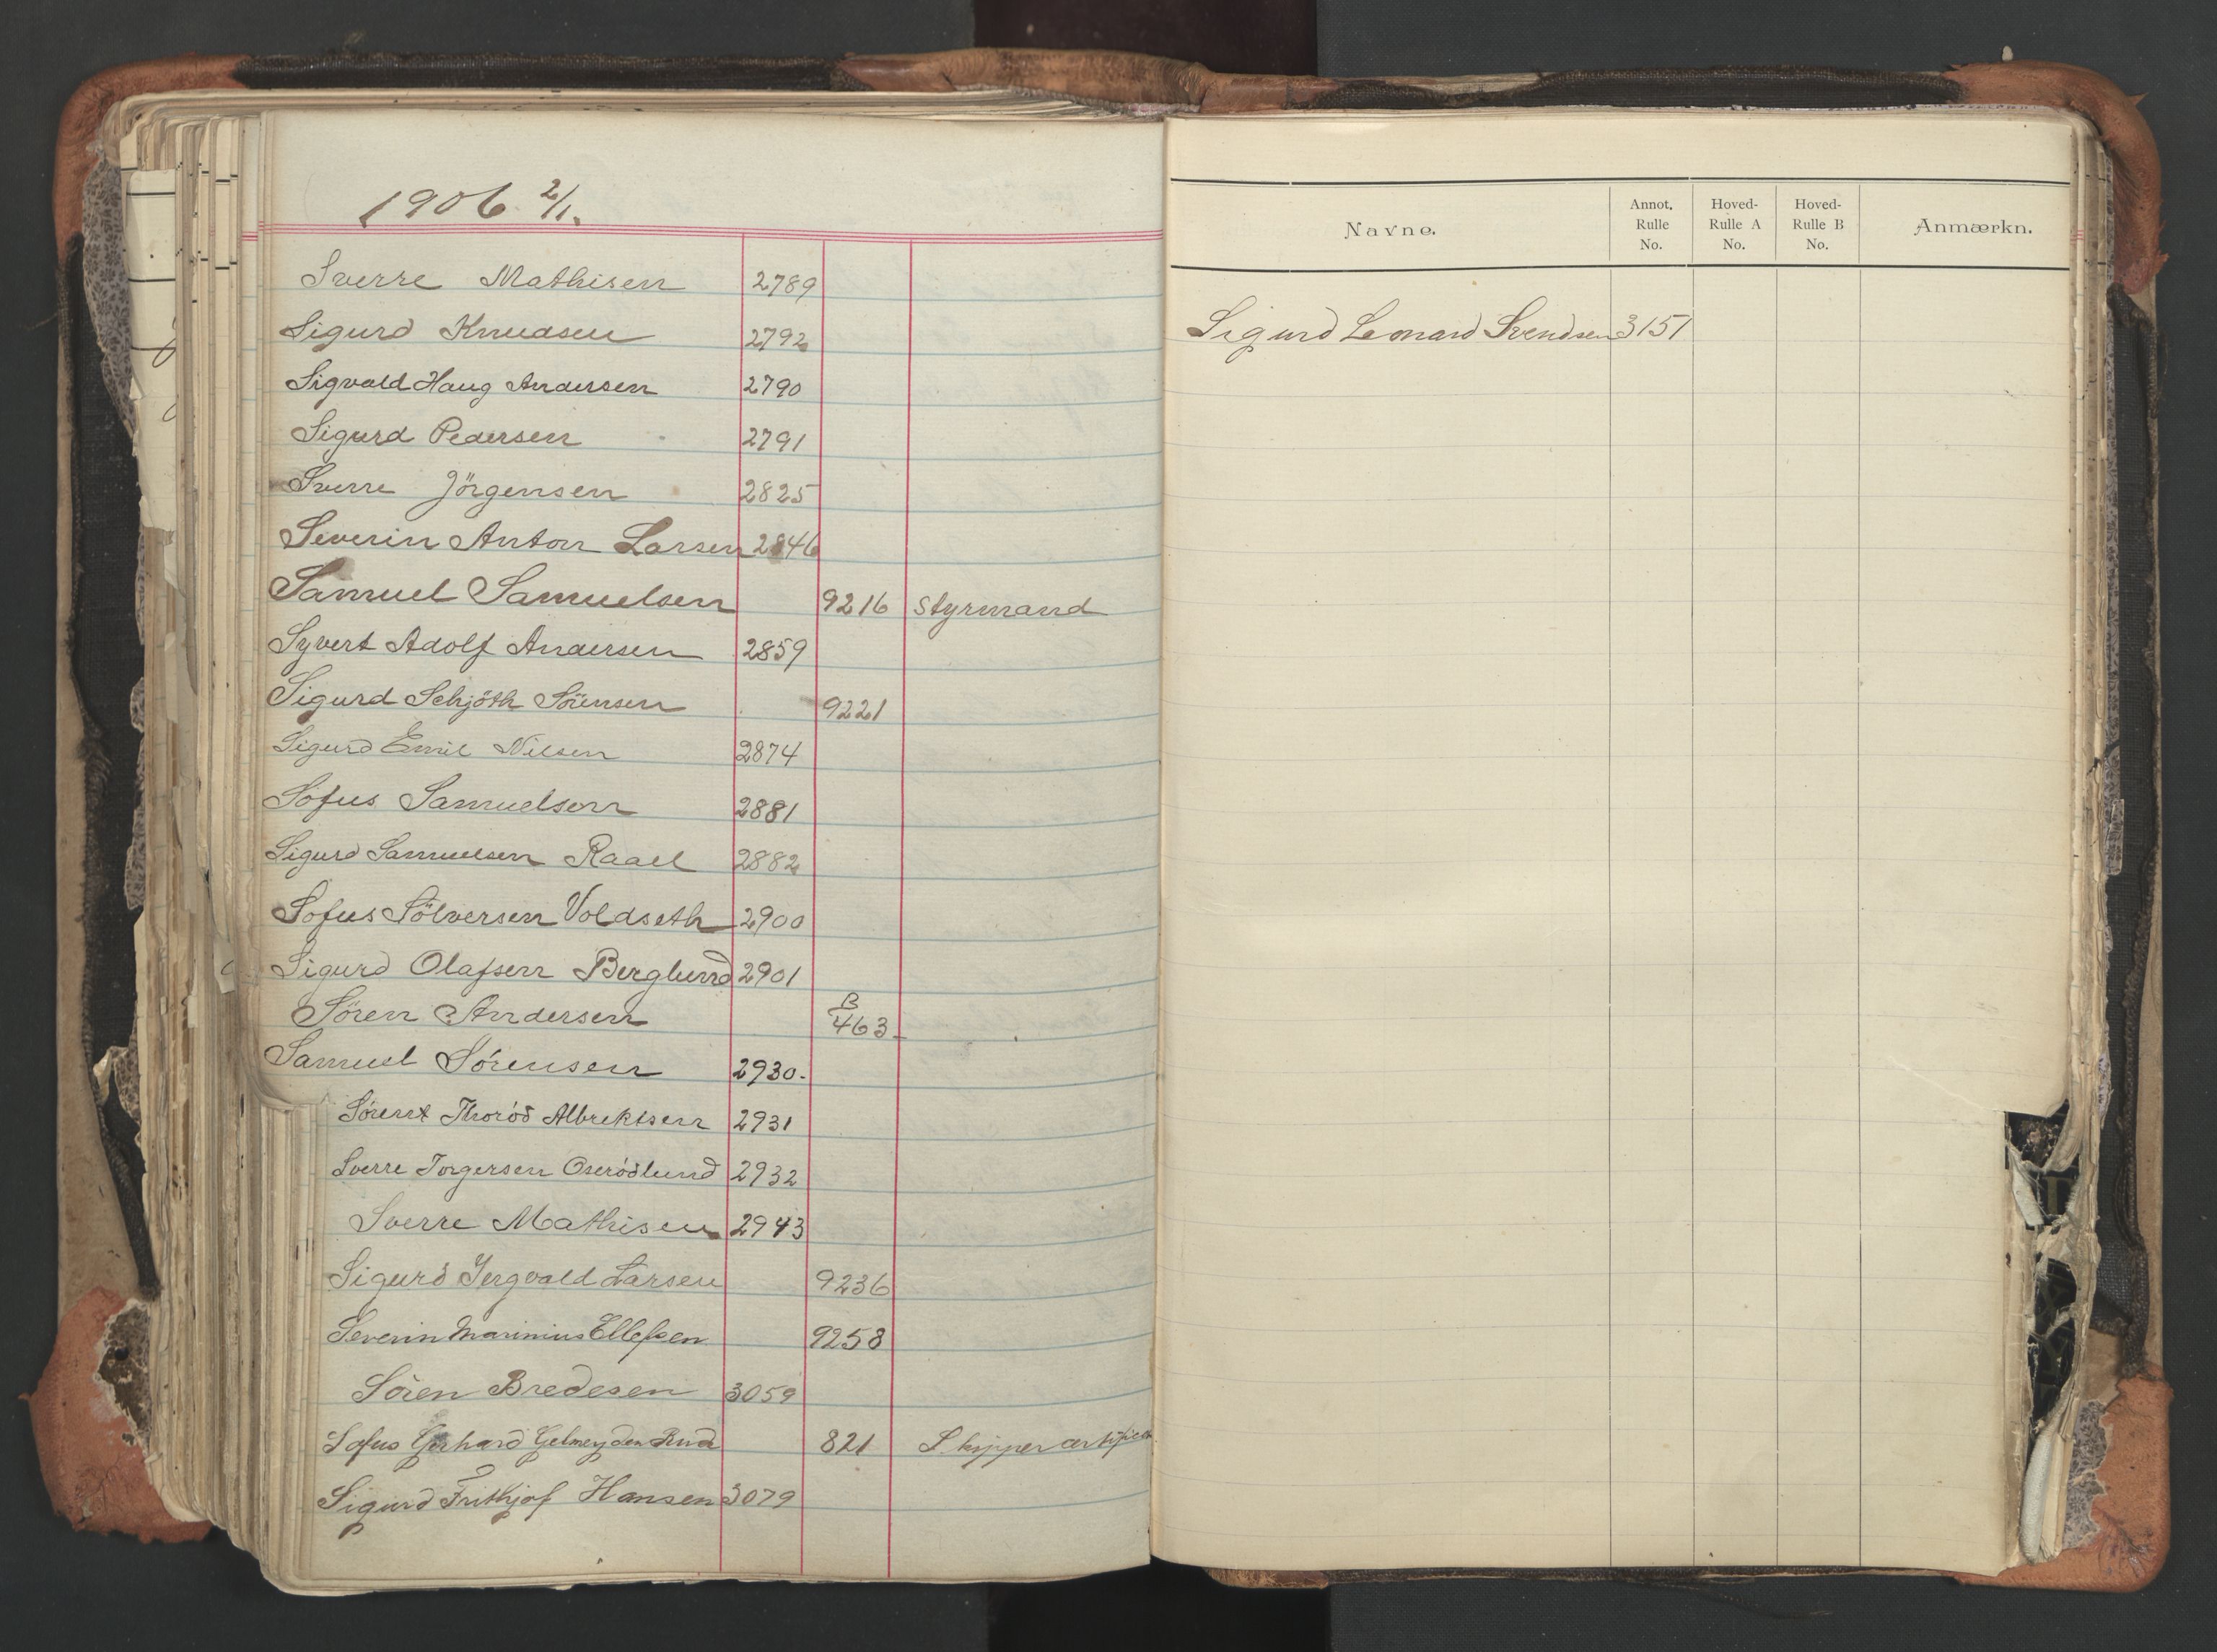 1906 2/1.
Sverre Mathisen 2789
Sigurd Knudsen 2792
Sigvald Haug Andersen 2790
Sigurd Pedersen 2791
Sverre Jörgensen 2825
Severin Anton Larsen 2846
Samuel Samuelsen 9216 Styrmand
Syvert Adolf Andersen 2859
Sigurd Schjöth Sörensen 9221
Sigurd Emil Nilsen 2874
Sofus Samuelsen 2881
Sigurd Samuelsen Raael 2882
Sofus Sölversen Voldseth 2900
Sigurd Olafsen Berglund 2901
Sören Andersen B 463
Samuel Sörensen 2930.
Sörent Thoröd Albrektsen 2931
Sverre Torgersen Oserödlund 2932
Sverre Mathisen 2943
Sigurd Yergvald Larsen 9236
Severin Marinius Ellefsen 9258
Sören Bredesen 3059
Sofus Gerhard Gelmeyden 821 Skipper
Sigurd Frithjof Hansen 3079
Navne. Annot. Rulle No. Hoved-Rulle A No. Hoved-Rulle B No. Anmærkn.
Sigurd Leonard Svendsen 3151